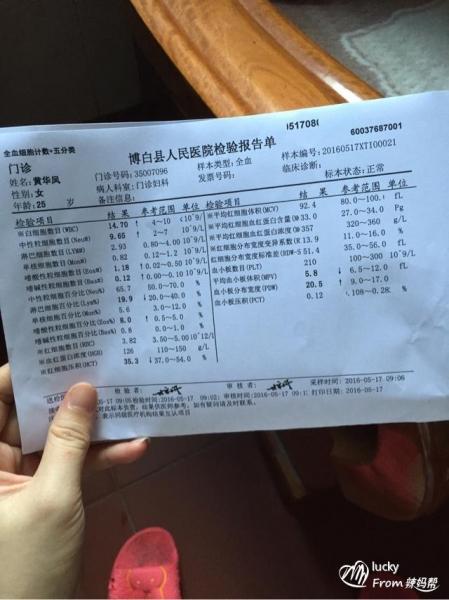 全血细胞计数+五分类
博白县人民医院检验报告单
60037687001
门诊
门诊号:35007096 样本类型:全血 样本编号:20160517XT100021
姓名:黄华凤 病人科室:门诊妇科 发票号码: 临床诊断:
性别:女 备注信息: 标本状态:正常
年龄:25 岁
检验项目 结果 参考范围 单位 检验项目 结果 参考范围 单位
※白细胞数目(WBC) 14.70 ↑ 4~10 ×10^9/
中性粒细胞数目(Neu#) 9.65 ↑ 2~7 10^9/L
淋巴细胞数目(LYM#) 2.93 0.80~4.00 10^9/L
单核细胞数目(Mon#) 0.82 0.12~1.2 10^9/L
嗜酸性粒细胞数目(Eos#) 1.18 ↑ 0.02~0.50 10^9/L
嗜碱性粒细胞数目(Bas#) 0.12 ↑ 0.00~0.10 10^9/L
中性粒细胞百分比(Neu%) 65.7 50.0~70.0 %
淋巴细胞百分比(Lys%) 19.9 ↓ 20.0~40.0 %
单核细胞百分比(Mon%) 5.6 3.0~12.0 %
嗜酸性粒细胞百分比(Eos%) 8.0 ↑ 0.5~5.0 %
嗜碱性粒细胞百分比(Bas%) 0.8 0.0~1.0 %
※红细胞数目(RBC) 3.82 3.50~5.00 10^12/L
※血红蛋白浓度(HGB) 126 110~150 g/L
※红细胞(HCT) 35.3 ↓ 37.0~54.0 %
※平均红细胞体积(MCV) 92.4 80.0~100. fL
※平均红细胞血红蛋白含量 33.0 27.0~34.0 Pg
※平均红细胞血红蛋白浓度 357 320~360 g/L
红细胞分布宽度变异系数 13.9 11.0~16.0 %
红细胞分布宽度标准差(RDW-S 51.4 35.0~56.0 fL
血小板数目(PLT) 210 100~300 10^9/L
平均血小板体积(MPV) 5.8 ↓ 6.5~12.0 fL
血小板分布宽度(PDW) 20.5 ↑ 9.0~17.0
血小板压积(PCT) 0.12 .108~0.28
检验者: 审核者: 采样时间:2016-05-17 09:06
09:05 检验时间:2016-05-17 09:02 审核时间:2016-05-17 09:1 打印日期:2016-05-17
对此标本负责，结果供医师参考，如有疑问请及时联系。
表示同级医疗机构结果互认项目
lucky
From 辣妈帮